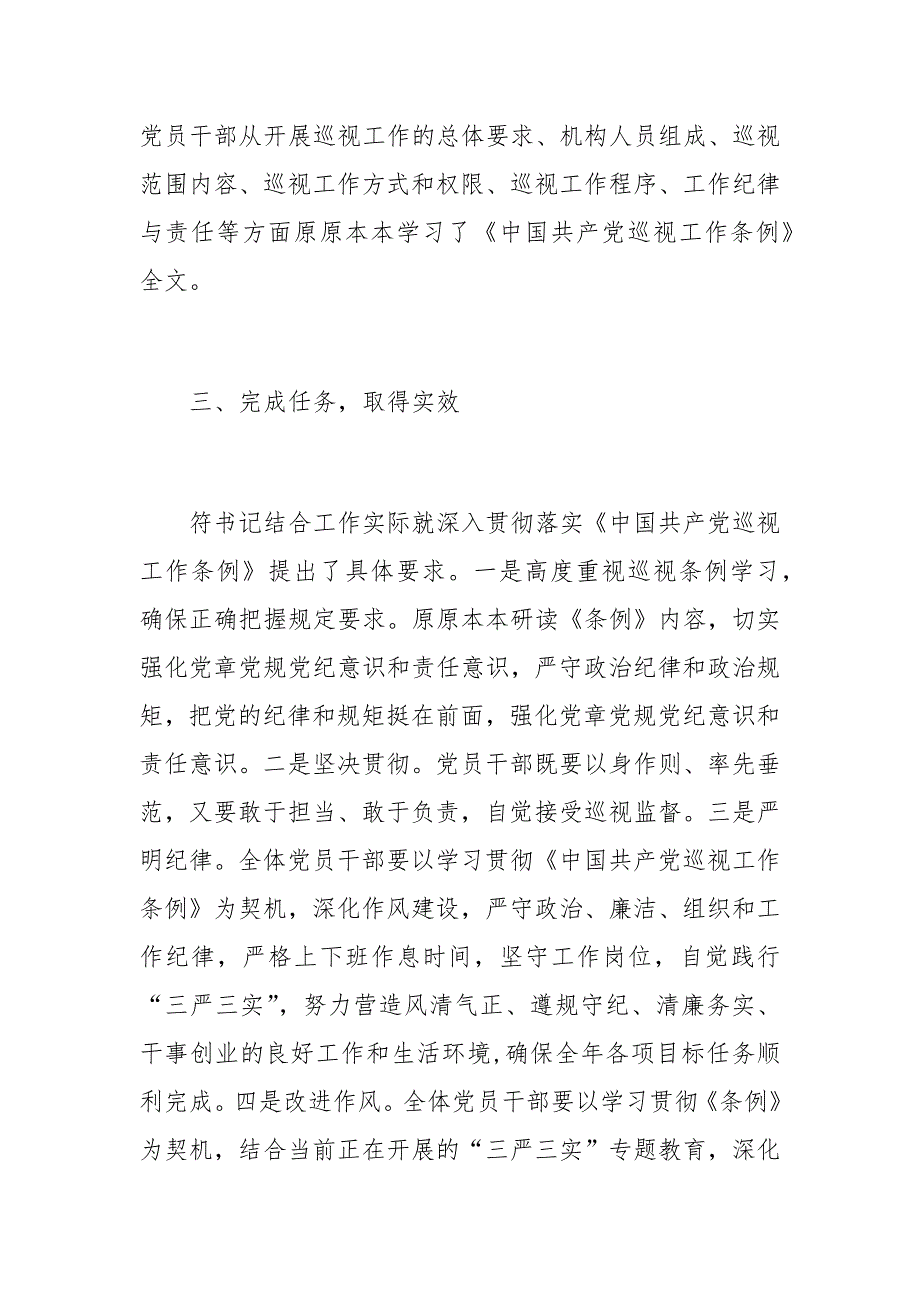 党员干部从开展巡视工作的总体要求、机构人员组成、巡视
范围内容、巡视工作方式和权限、巡视工作程序、工作纪律
与责任等方面原原本本学习了《中国共产党巡视工作条例》
全文。
三、完成任务，取得实效
符书记结合工作实际就深入贯彻落实《中国共产党巡视
工作条例》提出了具体要求。一是高度重视巡视条例学习，
确保正确把握规定要求。原原本本研读《条例》内容，切实
强化党章党规党纪意识和责任意识，严守政治纪律和政治规
矩，把党的纪律和规矩挺在前面，强化党章党规党纪意识和
责任意识。二是坚决贯彻。党员干部既要以身作则、率先垂
范，又要敢于担当、敢于负责，自觉接受巡视监督。三是严
明纪律。全体党员干部要以学习贯彻《中国共产党巡视工作
条例》为契机，深化作风建设，严守政治、廉洁、组织和工
作纪律，严格上下班作息时间，坚守工作岗位，自觉践行
“三严三实”，努力营造风清气正、遵规守纪、清廉务实、
干事创业的良好工作和生活环境,确保全年各项目标任务顺
利完成。四是改进作风。全体党员干部要以学习贯彻《条例》
为契机，结合当前正在开展的“三严三实”专题教育，深化